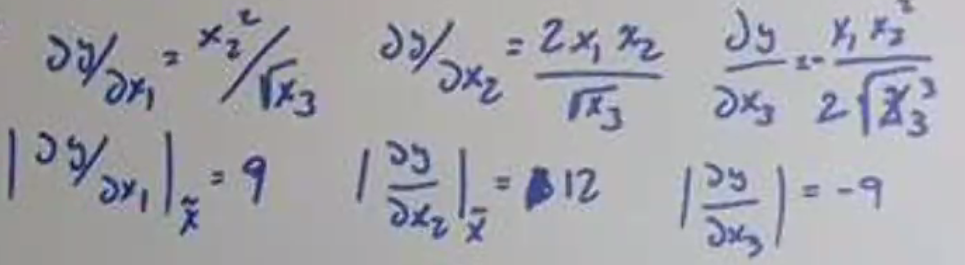 ∂y/∂x₁ = x₂²/√x₃   ∂y/∂x₂ = 2x₁x₂/√x₃   ∂y/∂x₃ = - x₁x₂²/2√x₃³
|∂y/∂x₁|_x̃ = 9   |∂y/∂x₂|_x̄ = 12   |∂y/∂x₃| = -9